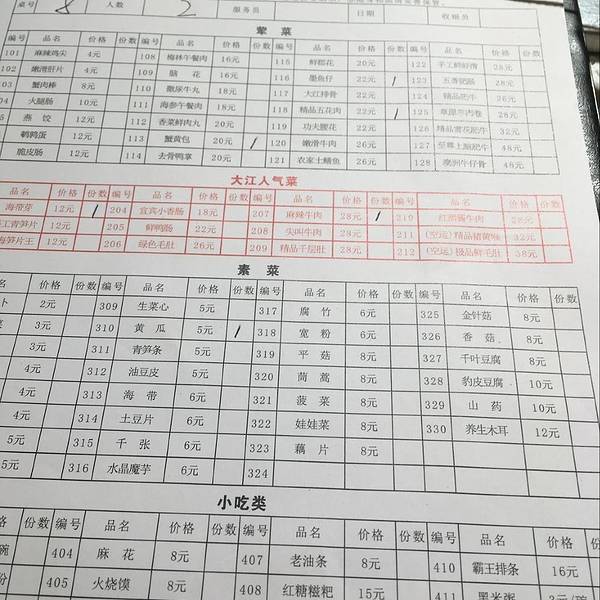 桌号 8 人数 2 服务员 日期 收银员
荤 菜
编号 品名 价格 份数 编号 品名 价格 份数 编号 品名 价格 份数 编号 品名 价格
101 麻辣鸡尖 4元 108 梅林午餐肉 16元 115 鲜郡花 20元 122 手工鲜虾滑 28元
102 嫩滑肝片 4元 109 脑 花 16元 116 墨鱼仔 22元 / 123 五香肥肠 28元
103 蟹肉棒 8元 110 撒尿牛丸 18元 117 大江排骨 22元 124 精品肥牛 26元
104 火腿肠 10元 111 海参午餐肉 18元 118 精品五花肉 22元 / 125 草原羔羊卷 28元
燕 饺 12元 112 香菜鲜肉丸 20元 119 功夫腰花 22元 126 精品雪花肥牛 32元
鹌鹑蛋 12元 113 蟹黄包 20元 / 120 嫩滑牛肉 26元 127 至尊土豚肥牛 48元
脆皮肠 12元 114 去骨鸭掌 20元 121 农家土鳝鱼 26元 128 澳洲牛仔骨 48元
大江人气菜
品名 价格 份数 编号 品名 价格 份数 编号 品名 价格 份数 编号 品名 价格 份数
海带芽 12元 / 204 宜宾小香肠 18元 207 麻辣牛肉 28元 / 210 红酒酱牛肉 28元
工青笋片 12元 205 鲜鸭肠 22元 208 尖叫牛肉 28元 211 (空运)精品猪黄喉 32元
海笋片王 12元 206 绿色毛肚 26元 209 精品千层肚 28元 212 (空运)极品鲜毛肚 38元
素 菜
品名 价格 份数 编号 品名 价格 份数 编号 品名 价格 份数 编号 品名 价格 份数
卜 2元 309 生菜心 5元 317 腐 竹 6元 325 金针菇 8元
3元 310 黄 瓜 5元 / 318 宽 粉 6元 326 香 菇 8元
3元 311 青笋条 5元 319 平 菇 8元 327 千叶豆腐 8元
4元 312 油豆皮 5元 320 茼 蒿 8元 328 豹皮豆腐 10元
4元 313 海 带 6元 321 菠 菜 8元 329 山 药 10元
4元 314 土豆片 6元 322 娃娃菜 8元 330 养生木耳 12元
5元 315 千 张 6元 323 藕 片 8元
5元 316 水晶魔芋 6元 324
小吃类
价格 份数 编号 品名 价格 份数 编号 品名 价格 份数 编号 品名 价格
碗 404 麻 花 8元 407 老油条 8元 410 霸王排条 16元
份 405 火烧馍 8元 408 红糖糍粑 15元 411 黑米粥